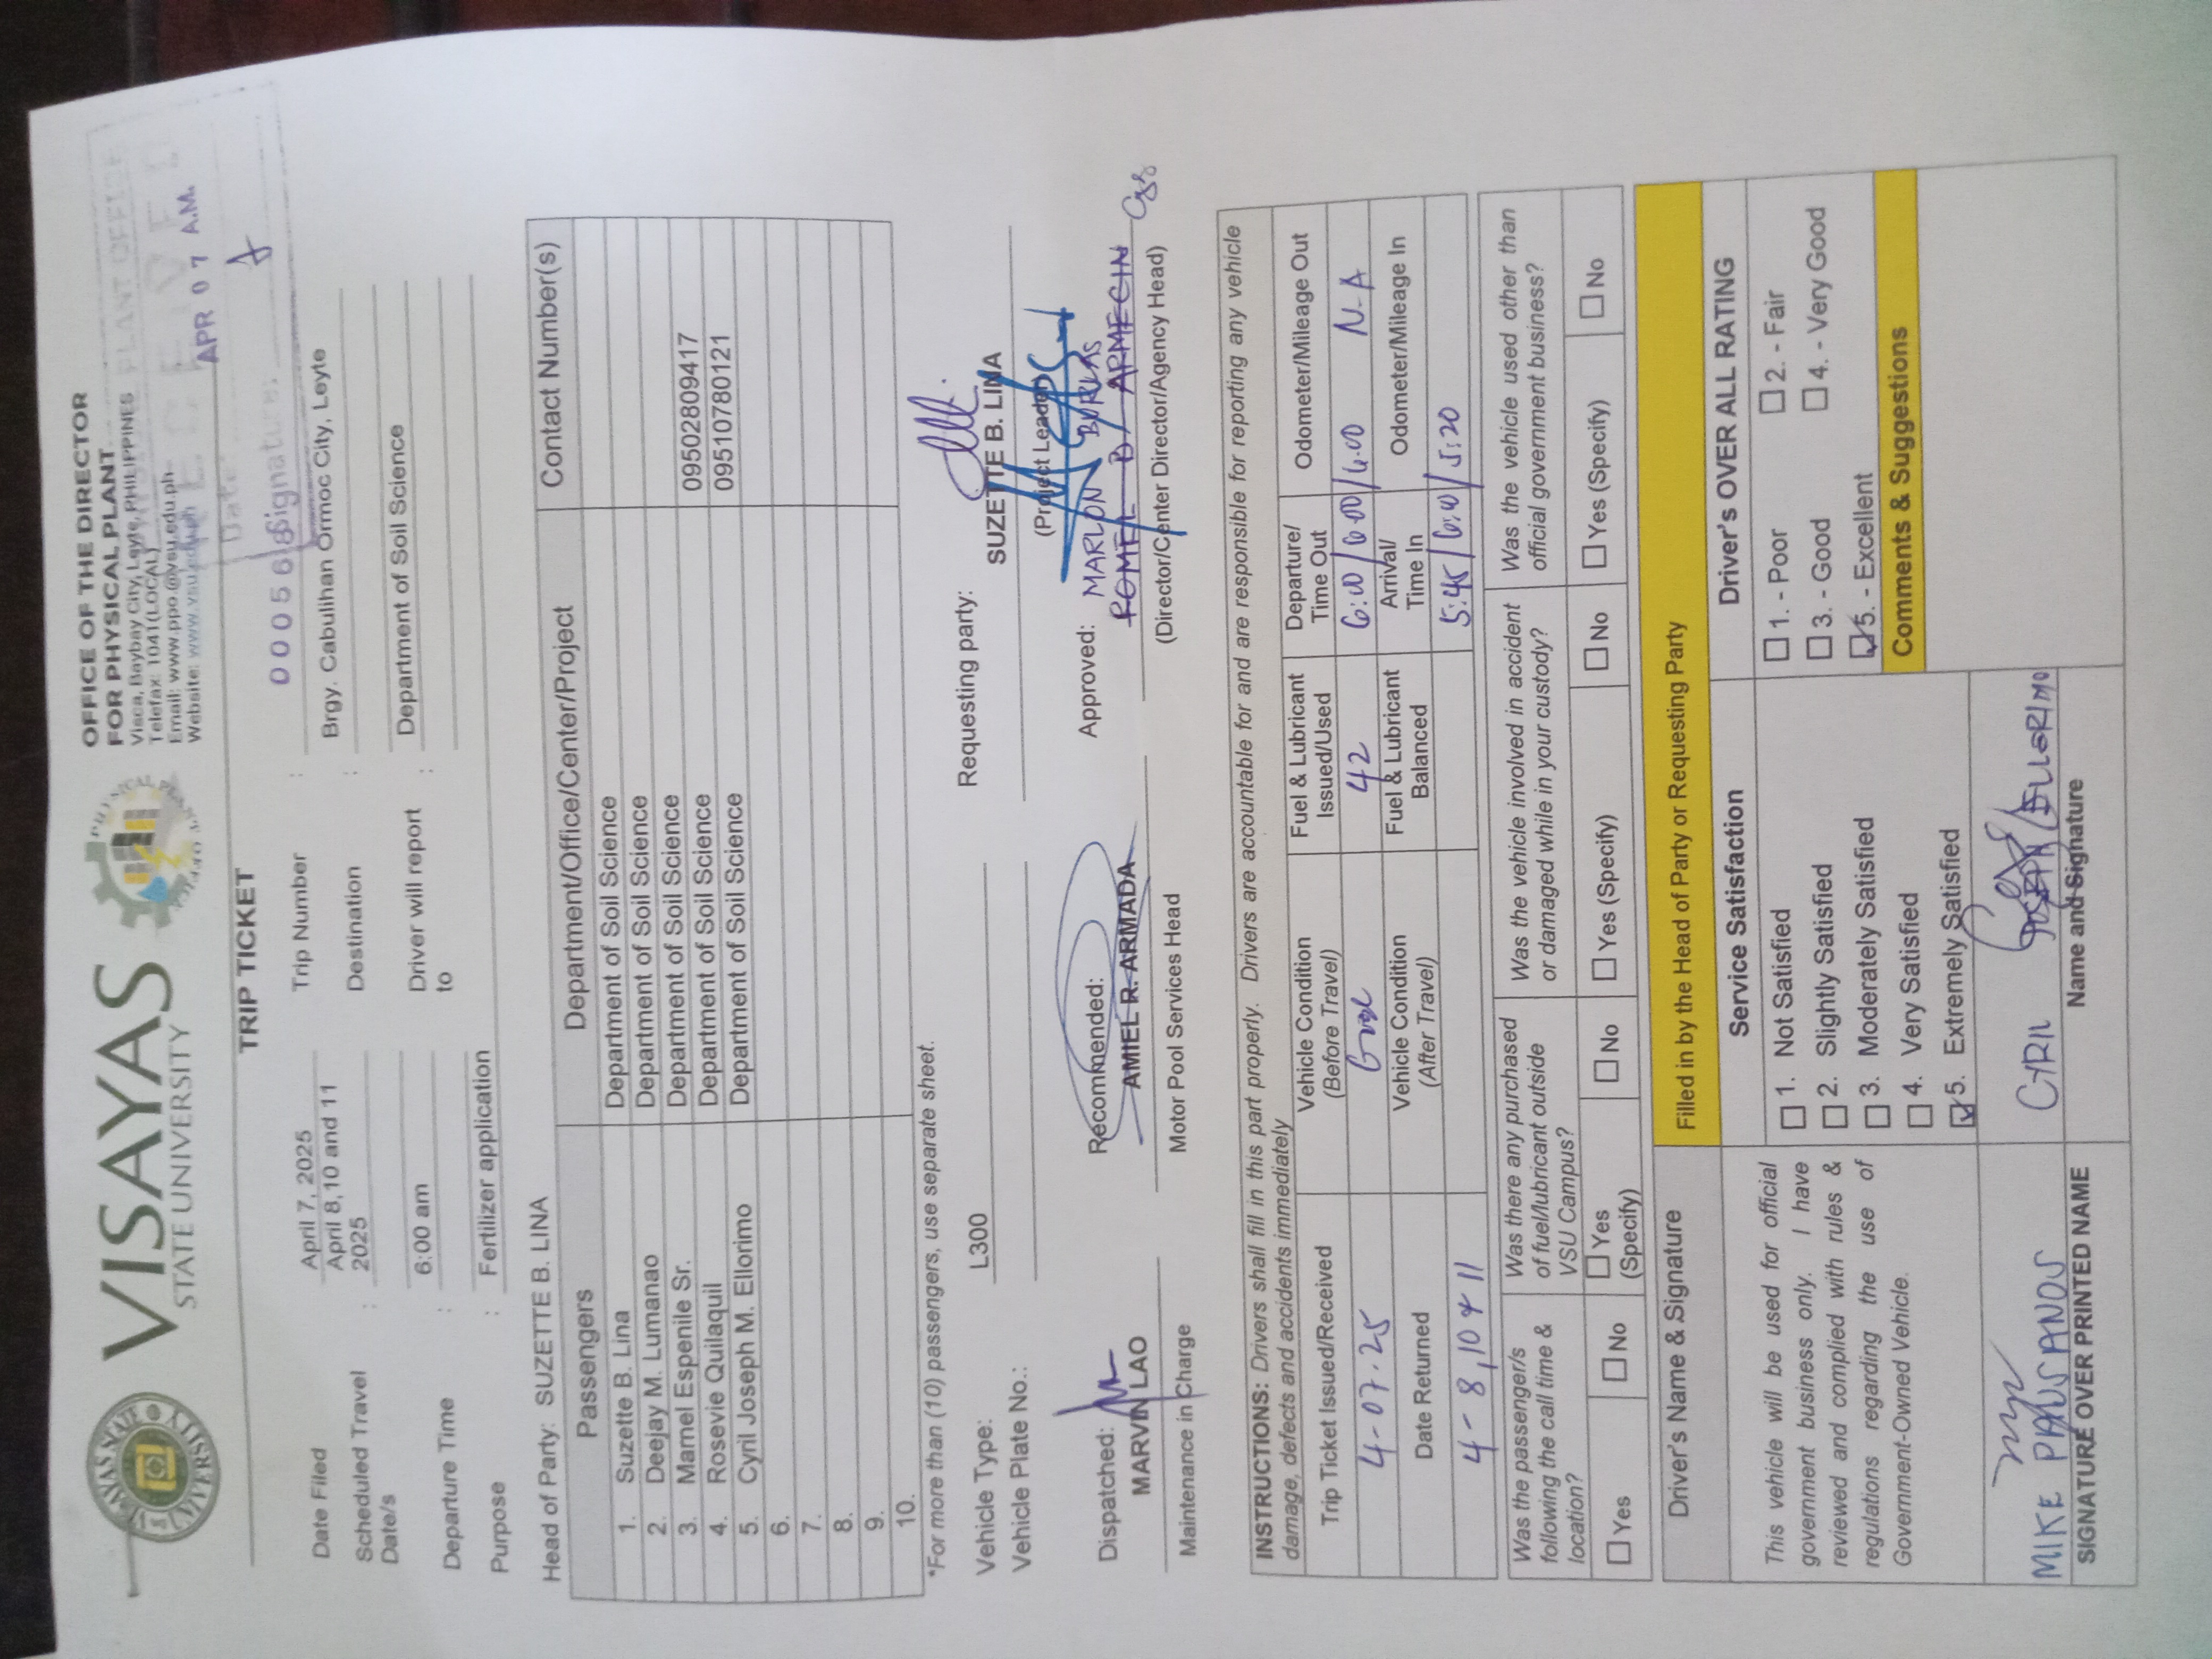 VISAYAS
STATE UNIVERSITY
OFFICE OF THE DIRECTOR
FOR PHYSICAL PLANT
Visca, Baybay City, Leyte, PHILIPPINES
Telefax: 1041(LOCAL)
Email: www.ppo.@vsu.edu.ph
Website: www.vsu.edu.ph
PLANT OFFICE
Date:
APR 07 A.M.
Signature:
TRIP TICKET
Date Filed April 7, 2025 Trip Number : 000568
Scheduled Travel Date/s : April 8,10 and 11 2025 Destination : Brgy. Cabulihan Ormoc City, Leyte
Departure Time : 6:00 am Driver will report to : Department of Soil Science
Purpose : Fertilizer application
Head of Party: SUZETTE B. LINA
Passengers Department/Office/Center/Project Contact Number(s)
1. Suzette B. Lina Department of Soil Science
2. Deejay M. Lumanao Department of Soil Science
3. Mamel Espenile Sr. Department of Soil Science 09502809417
4. Rosevie Quilaquil Department of Soil Science 09510780121
5. Cyril Joseph M. Ellorimo Department of Soil Science
6.
7.
8.
9.
10.
*For more than (10) passengers, use separate sheet.
Vehicle Type: L300 Requesting party:
Vehicle Plate No.: SUZETTE B. LINA
(Project Leader)
Dispatched: Recommended: Approved: MARLON BURLAS
MARVIN LAO AMIEL R. ARMADA ROMEL B. ARMECIN
Maintenance in Charge Motor Pool Services Head (Director/Center Director/Agency Head)
INSTRUCTIONS: Drivers shall fill in this part properly. Drivers are accountable for and are responsible for reporting any vehicle
damage, defects and accidents immediately
Trip Ticket Issued/Received Vehicle Condition (Before Travel) Fuel & Lubricant Issued/Used Departure/ Time Out Odometer/Mileage Out
4-07-25 Good 42 6:00/6:00/6:00 N-A
Date Returned Vehicle Condition (After Travel) Fuel & Lubricant Balanced Arrival/ Time In Odometer/Mileage In
4-8,10 & 11 5:45/6:10/5:20
Was the passenger/s following the call time & location? Was there any purchased of fuel/lubricant outside VSU Campus? Was the vehicle involved in accident or damaged while in your custody? Was the vehicle used other than official government business?
Yes No Yes (Specify) No Yes (Specify) No Yes (Specify) No
Driver's Name & Signature Filled in by the Head of Party or Requesting Party
Service Satisfaction Driver's OVER ALL RATING
This vehicle will be used for official
government business only. I have
reviewed and complied with rules &
regulations regarding the use of
Government-Owned Vehicle.
1. Not Satisfied
2. Slightly Satisfied
3. Moderately Satisfied
4. Very Satisfied
5. Extremely Satisfied
1. - Poor 2. - Fair
3. - Good 4. - Very Good
5. - Excellent
Comments & Suggestions
MIKE PAUSANOS CYRIL JOSEPH ELLORIMO
SIGNATURE OVER PRINTED NAME Name and Signature